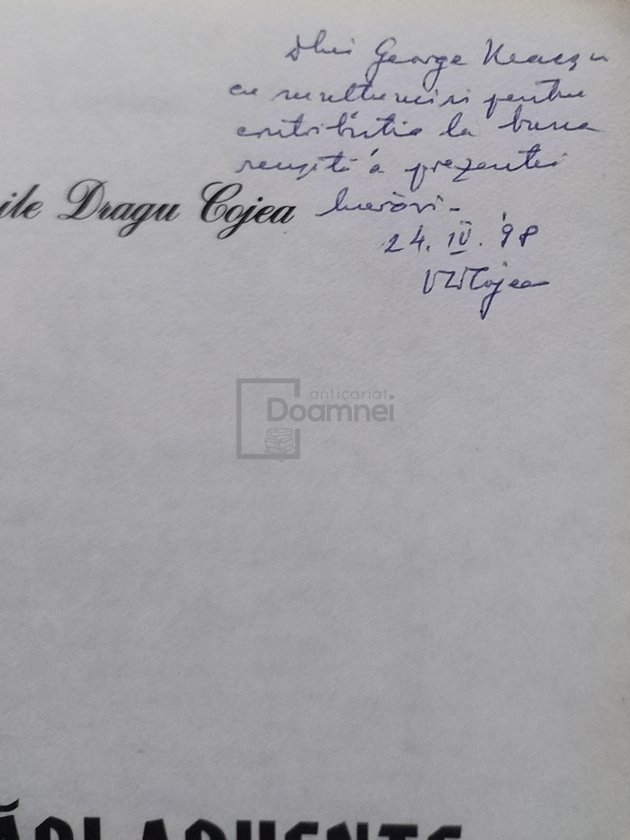 Dlui George Neacșu
cu mulțumiri pentru
contribuția la buna
reușită a prezentei
lucrări.
ile Dragu Cojea
24. IV. '98
VDCojea
anticariat
Doamnei